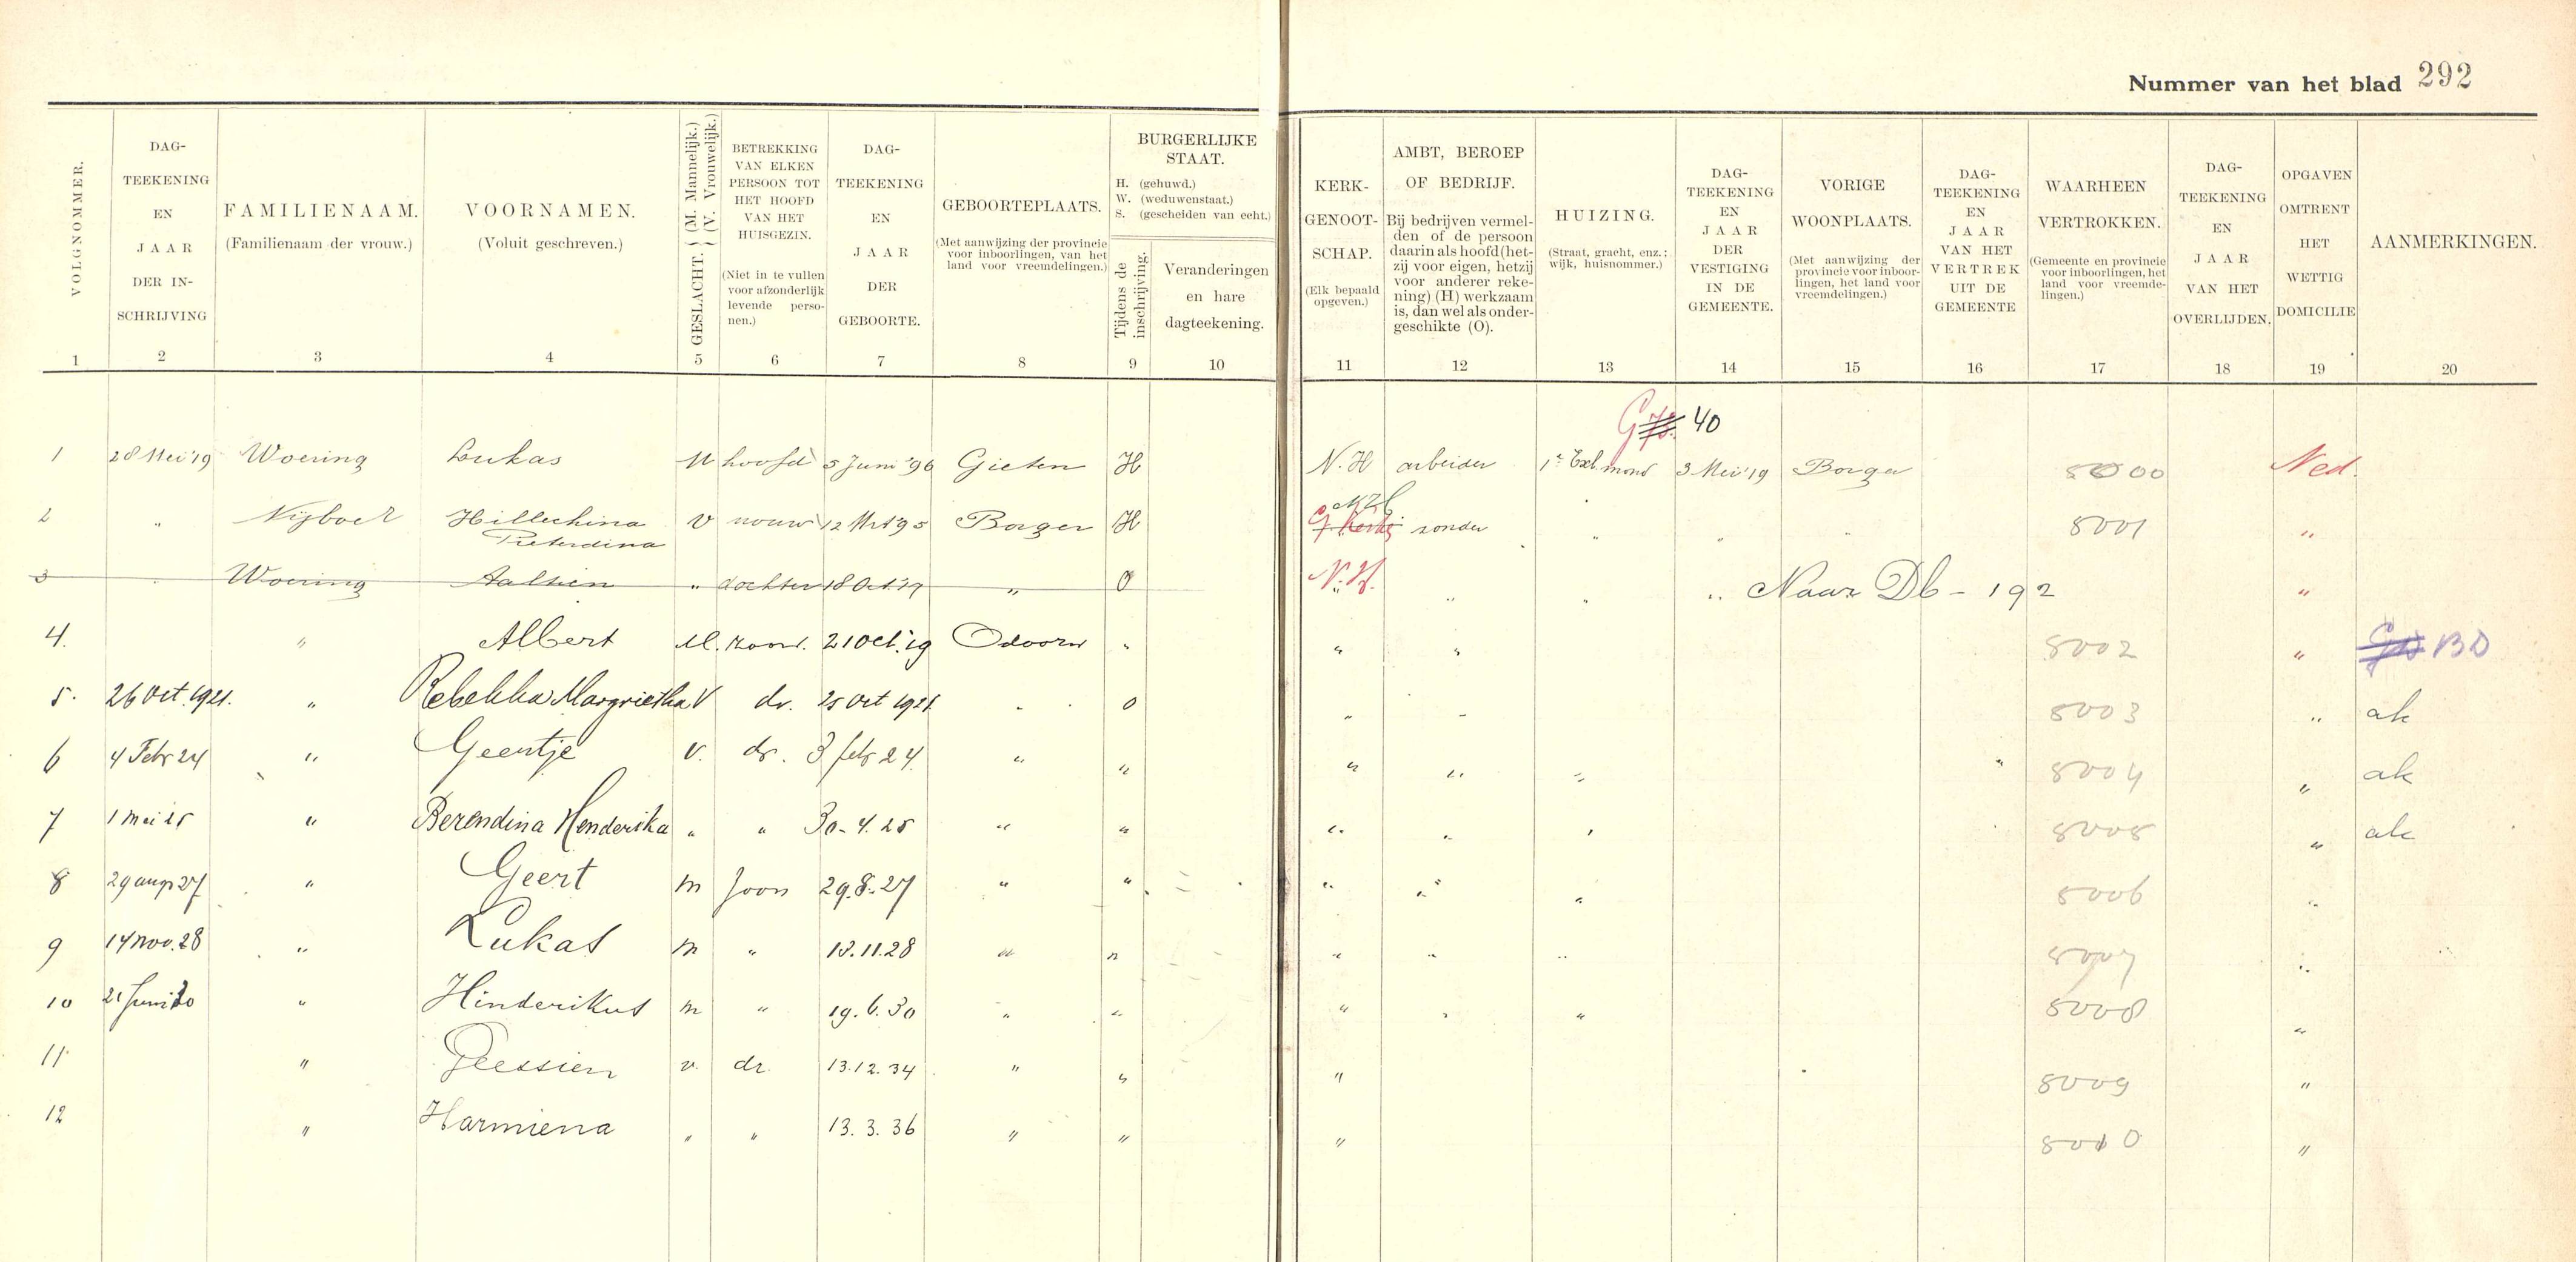 Nummer van het blad 292
VOLGNOMMER.
1
DAG-
TEEKENING
EN
JAAR
DER IN-
SCHRIJVING
2
FAMILIENAAM.
(Familienaam der vrouw.)
3
VOORNAMEN.
(Voluit geschreven.)
4
GESLACHT. { (M. Mannelijk.)
(V. Vrouwelijk.)
5
BETREKKING
VAN ELKEN
PERSOON TOT
HET HOOFD
VAN HET
HUISGEZIN.
(Niet in te vullen
voor afzonderlijk
levende perso-
nen.)
6
DAG-
TEEKENING
EN
JAAR
DER
GEBOORTE.
7
GEBOORTEPLAATS.
(Met aanwijzing der provincie
voor inboorlingen, van het
land voor vreemdelingen.)
8
BURGERLIJKE
STAAT.
H. (gehuwd.)
W. (weduwenstaat.)
S. (gescheiden van echt.)
Tijdens de
inschrijving.
9
Veranderingen
en hare
dagteekening.
10
KERK-
GENOOT-
SCHAP.
(Elk bepaald
opgeven.)
11
AMBT, BEROEP
OF BEDRIJF.
Bij bedrijven vermel-
den of de persoon
daarin als hoofd (het-
zij voor eigen, hetzij
voor anderer reke-
ning) (H) werkzaam
is, dan wel als onder-
geschikte (O).
12
HUIZING.
(Straat, gracht, enz.;
wijk, huisnommer.)
13
DAG-
TEEKENING
EN
JAAR
DER
VESTIGING
IN DE
GEMEENTE.
14
VORIGE
WOONPLAATS.
(Met aanwijzing der
provincie voor inboor-
lingen, het land voor
vreemdelingen.)
15
DAG-
TEEKENING
EN
JAAR
VAN HET
VERTREK
UIT DE
GEMEENTE
16
WAARHEEN
VERTROKKEN.
(Gemeente en provincie
voor inboorlingen, het
land voor vreemde-
lingen.)
17
DAG-
TEEKENING
EN
JAAR
VAN HET
OVERLIJDEN.
18
OPGAVEN
OMTRENT
HET
WETTIG
DOMICILIE
19
AANMERKINGEN.
20
G 40
1 28 Mei '19 Woering Lukas M hoofd 5 Juni '96 Gieten H N.H arbeider 1e Exl.mond 3 Mei '19 Borger 8000 Ned.
2 " Nijboer Hillechina V vrouw 12 Mrt '95 Borger H N.H zonder " " " 8001 "
Pieterdina
3 " Woering Aaltien " dochter 18 Oct. '17 " O N.H. " " " Naar Db - 192 "
4. " Albert M. zoon. 21 Oct. '19 Odoorn " " " 8002 " BD
5. 26 Oct. 1921. " Rebekka Margrietha V dr. 25 Oct 1921. " O " " 8003 " ak
6 4 Febr 24 " Geertje v. dr. 3 febr 24 " " " " " " 8004 " ak
7 1 Mei 25 " Berendina Henderika " " 30-4.25 " " " " " 8005 " ak
8 29 aug 27 " Geert m zoon 29.8.27 " " " " " 8006 "
9 14 nov. 28 " Lukas m " 13.11.28 " " " " " 8007 "
10 21 Juni 30 " Hinderikus m " 19.6.30 " " " " " 8008 "
11 " Geessien v. dr. 13.12.34 " " " 8009 "
12 " Harmiena " " 13.3.36 " " " 8010 "